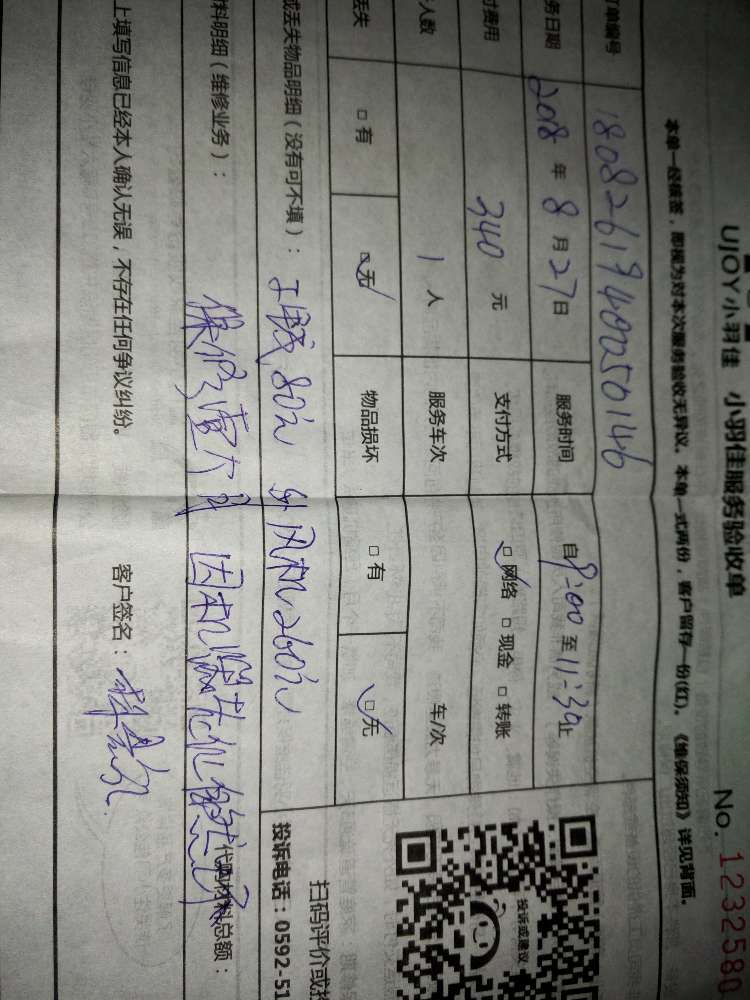 UJOY小羽佳 小羽佳服务验收单
No. 1232580
本单一经核签，即视为对本次服务验收无异议。本单一式两份，客户留存一份(红)。《维保须知》详见背面。
订单编号 18082619400250146
务日期 2018 年 8 月 27 日 服务时间 自 9:00 至 11:30 止
付费用 340 元 支付方式 □网络 □现金 □转账
人数 1 人 服务车次 车/次
丢失 □有 □无 物品损坏 □有 □无
或丢失物品明细（没有可不填）： 工钱80元 外风机260元
料明细（维修业务）： 保修壹个月 因机器老化 代购材料总额：
上填写信息已经本人确认无误，不存在任何争议纠纷。 客户签名：
投诉或建议
扫码评价或投
投诉电话：0592-51